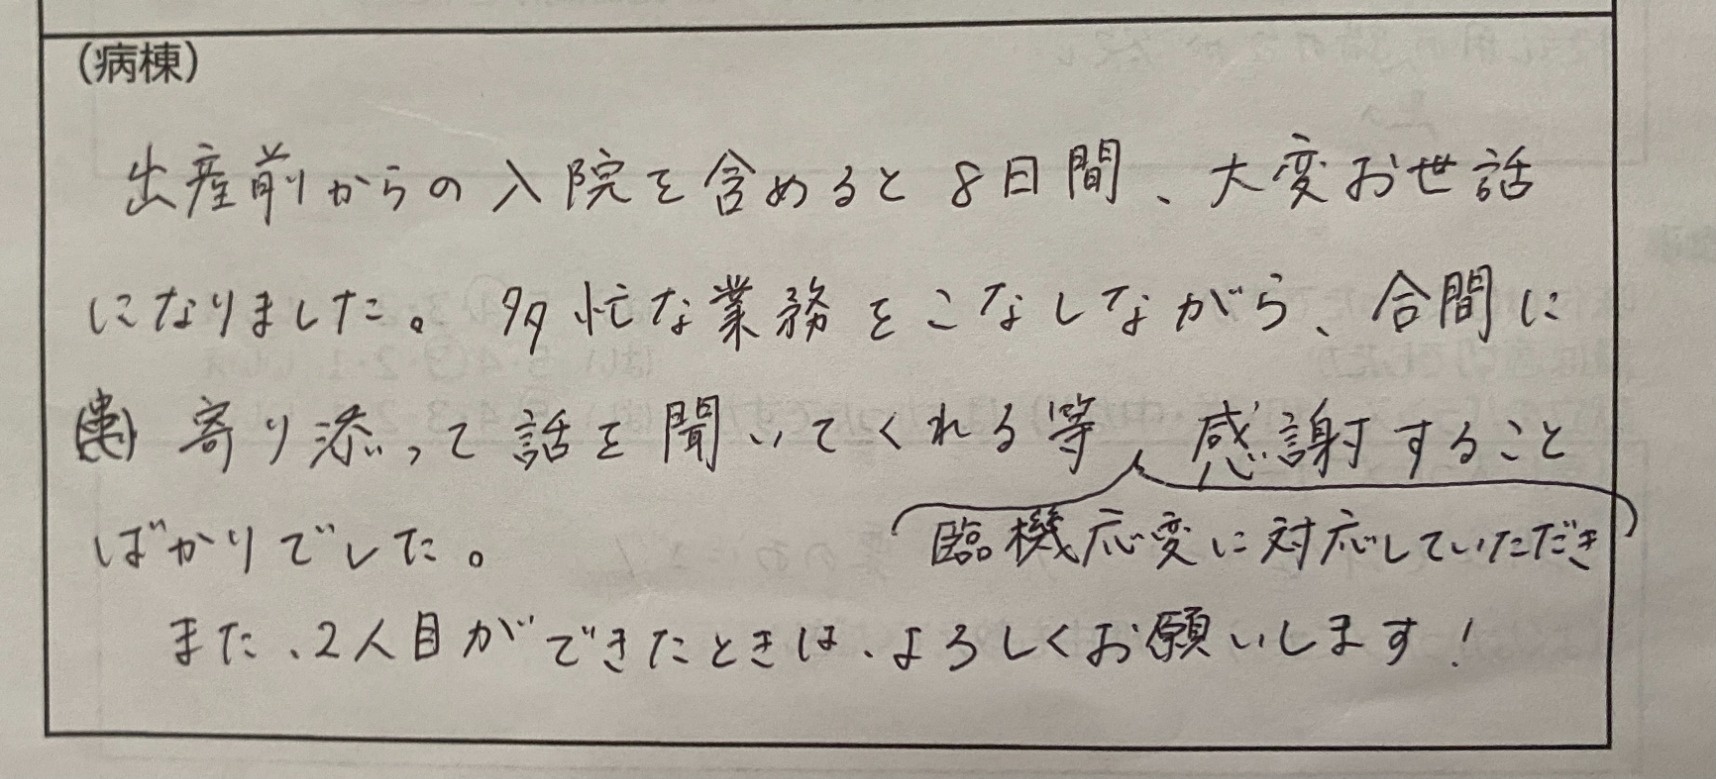 (病棟)
出産前からの入院を含めると8日間、大変お世話
になりました。多忙な業務をこなしながら、合間に
寄り添って話を聞いてくれる等 感謝すること
臨機応変に対応していただき
ばかりでした。
また、2人目ができたときは、よろしくお願いします！